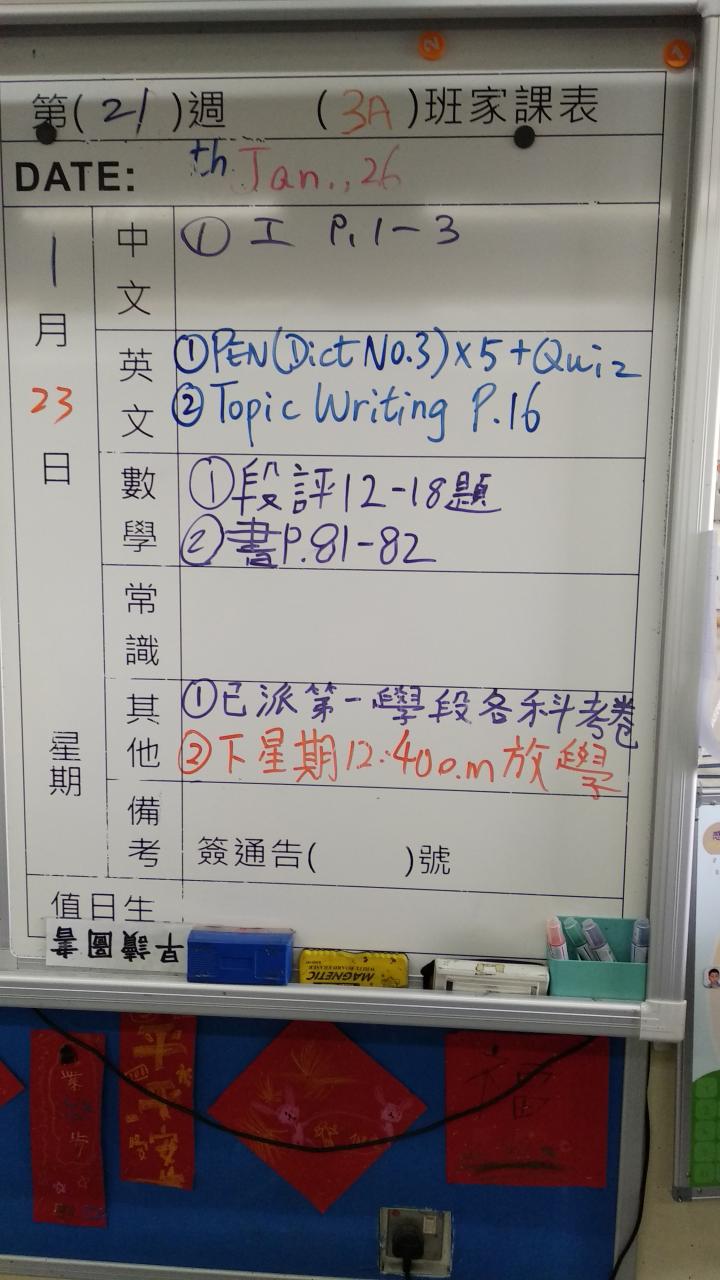 2
1
第(21)週 (3A)班家課表
DATE: th Jan., 26
1月23日 星期
中文 ① 工 P.1-3
英文 ① PEN(Dict No.3)×5+Quiz
② Topic Writing P.16
數學 ①段評12-18題
②書P.81-82
常識
其他 ①已派第一學段各科考卷
②下星期12:40a.m放學
備考 簽通告( )號
值日生
早讀圖書
MAGNETIC
WHITE BOARD ERASER
福